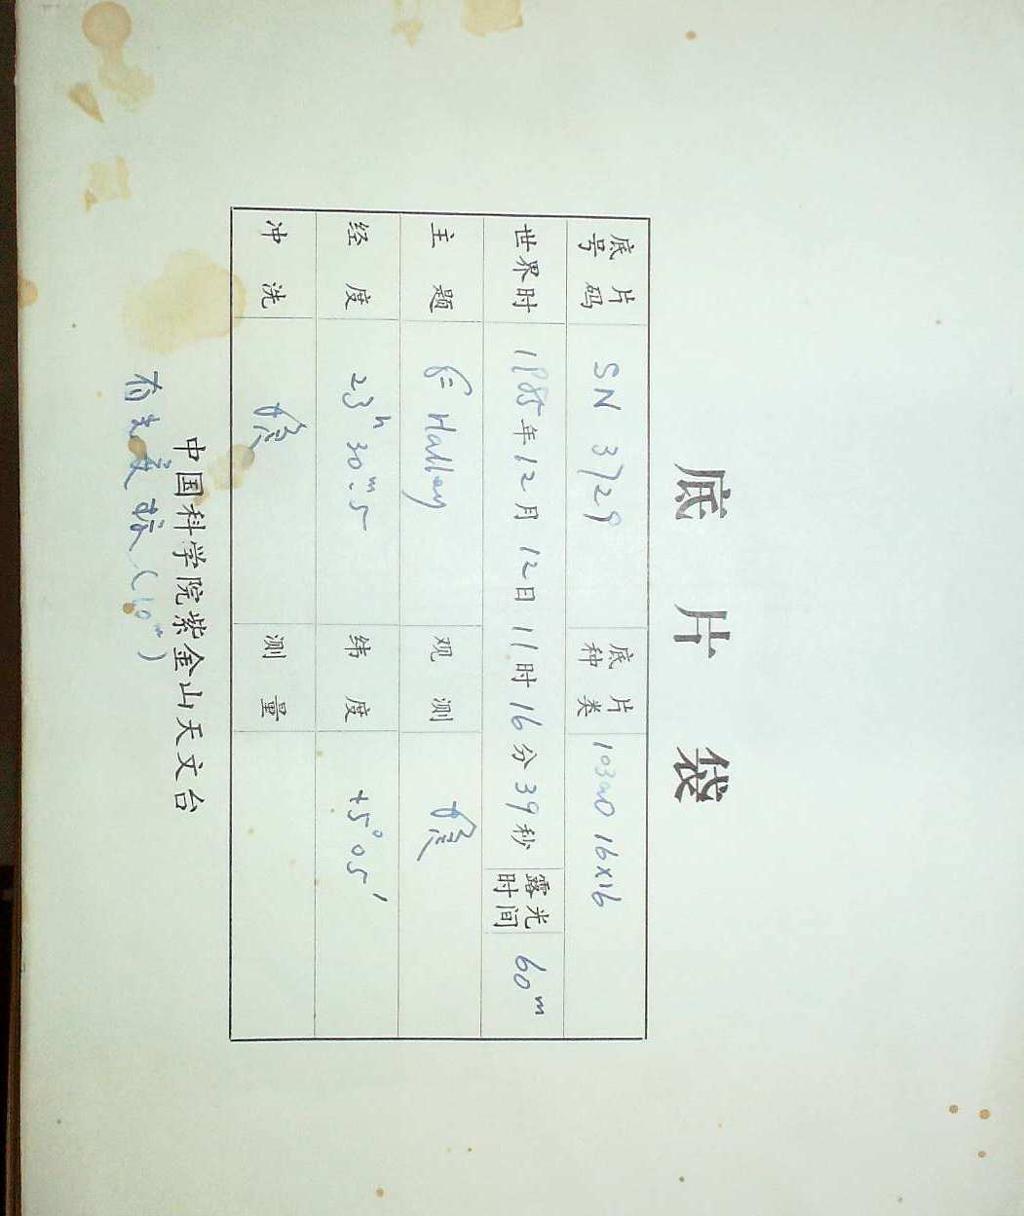 底片袋
底片号码 SN 3729 底片种类 103aO 16x16
世界时 1985年12月12日11时16分39秒 露光时间 60m
主题 Halley 观测
经度 23h 30m.5 纬度 +5° 05′
冲洗 测量
中国科学院紫金山天文台
有 (10m)